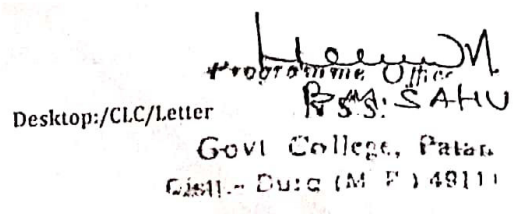 Programme Office
Desktop:/CLC/Letter
SAHU
Govt College, Patan
Distt.- Durg (M P ) 49111